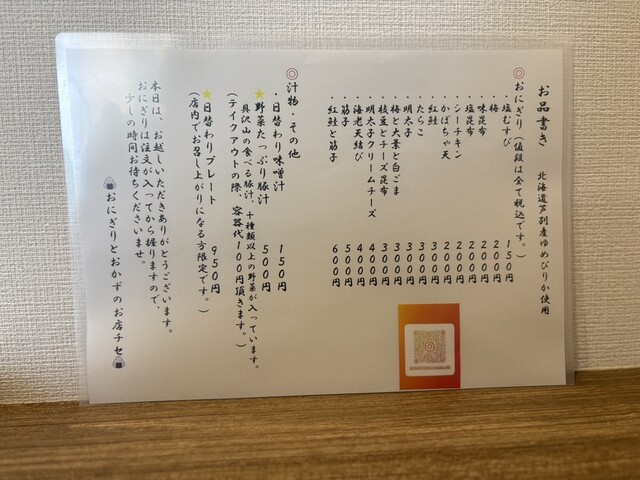 お品書き　北海道芦別産ゆめぴりか使用
◎おにぎり（値段は全て税込です。）
・塩むすび 150円
・梅 200円
・味昆布 200円
・塩昆布 200円
・シーチキン 200円
・かぼちゃ天 200円
・紅鮭 300円
・たらこ 300円
・明太子 300円
・梅と大葉と白ごま 300円
・枝豆とチーズ昆布 300円
・明太子クリームチーズ 400円
・海老天結び 400円
・筋子 500円
・紅鮭と筋子 600円
◎汁物・その他
・日替わり味噌汁 150円
★野菜たっぷり豚汁 500円
具沢山の食べる豚汁、十種類以上の野菜が入っています。
（テイクアウトの際、容器代100円頂きます。）
★日替わりプレート 950円
（店内でお召し上がりになる方限定です。）
本日は、お越しいただきありがとうございます。
おにぎりは注文が入ってから握りますので、
少しの時間お待ちくださいませ。
おにぎりとおかずのお店チセ